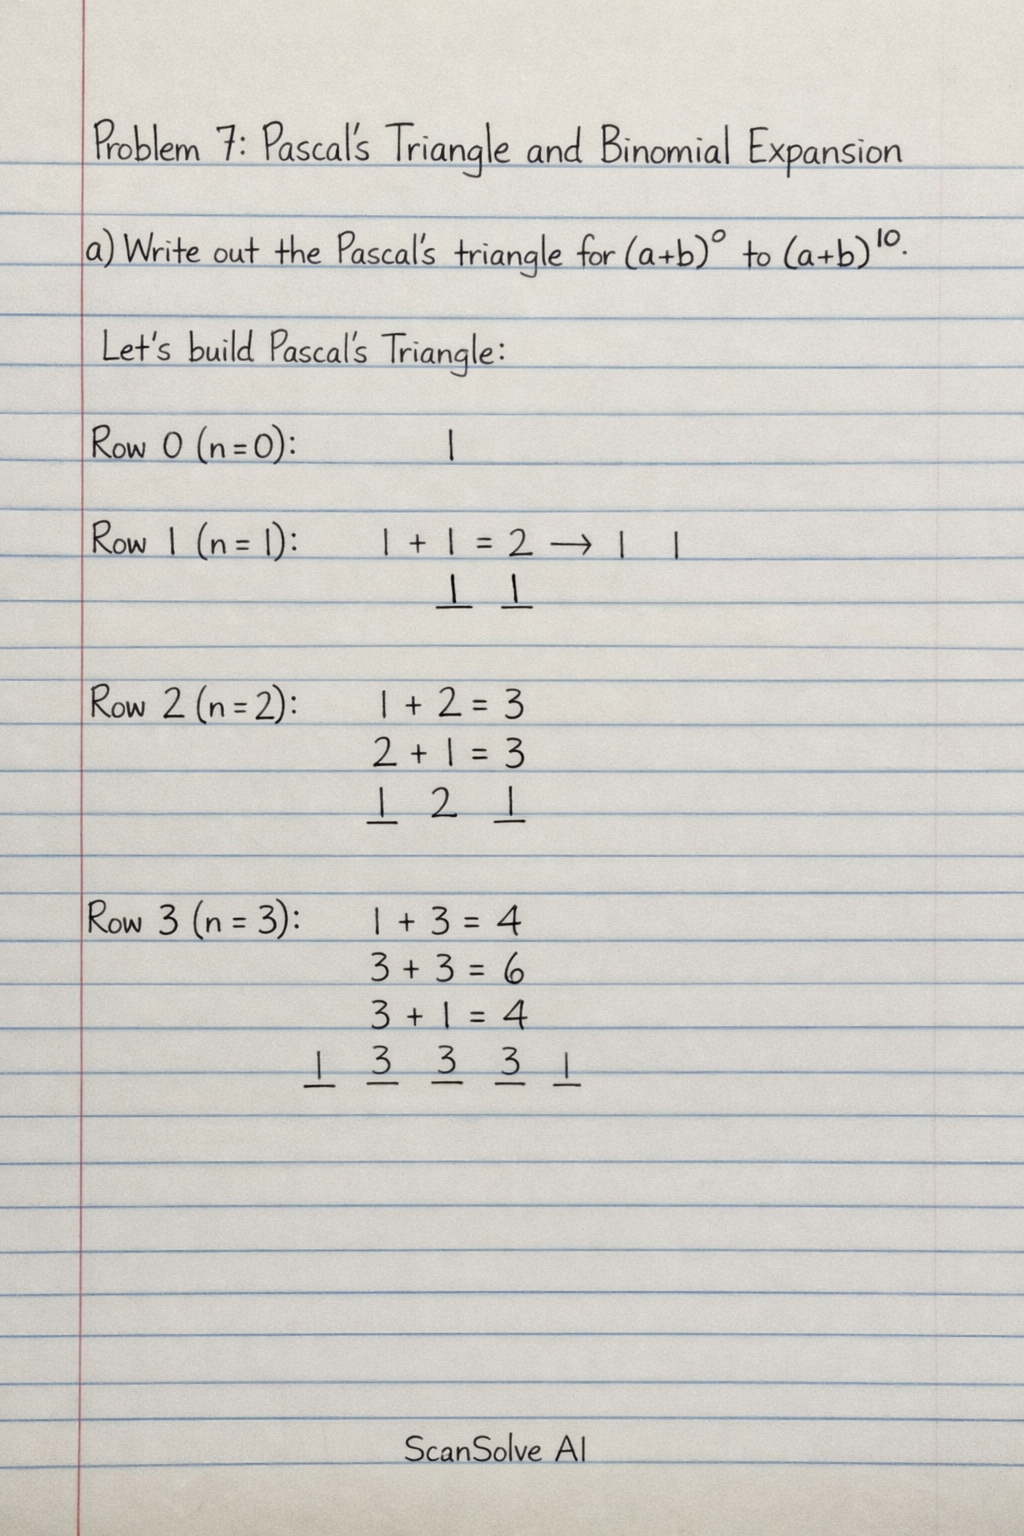 Problem 7: Pascal's Triangle and Binomial Expansion
a) Write out the Pascal's triangle for (a+b)⁰ to (a+b)¹⁰.
Let's build Pascal's Triangle:
Row 0 (n=0): 1
Row 1 (n=1): 1 + 1 = 2 → 1 1
1 1
Row 2 (n=2): 1 + 2 = 3
2 + 1 = 3
1 2 1
Row 3 (n=3): 1 + 3 = 4
3 + 3 = 6
3 + 1 = 4
1 3 3 3 1
ScanSolve AI